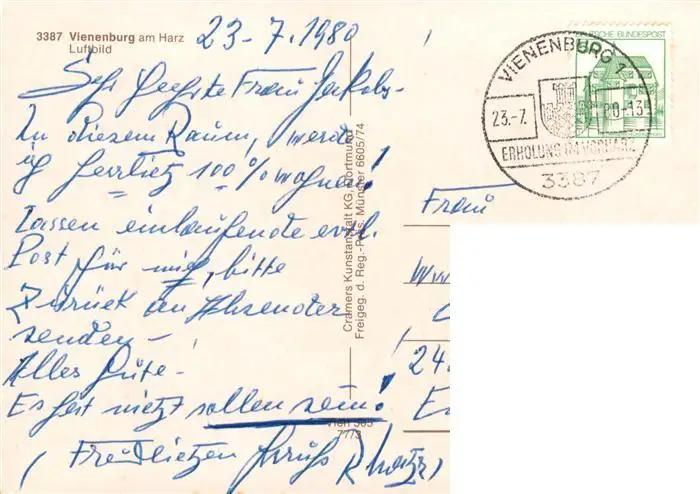 3387 Vienenburg am Harz
Luftbild
23-7.1980
Sehr Geehrte Frau
In diesem Raum, werde
ig herrlietz 100% wohnen!
Lassen einlaufende evtl.
Post für mig, bitte
Zurück an Absender
senden-
Alles Gute-
Es hat nietzt sollen sein!
(Freudlietzen Gruß
Cramers Kunstanstalt KG, Dortmund
Freigeg. d. Reg.-Präs. Münster 6605/74
7773
DEUTSCHE BUNDESPOST
VIENENBURG 1
23.-7. 80-13
ERHOLUNG IM VORHARZ
3387
Frau
24